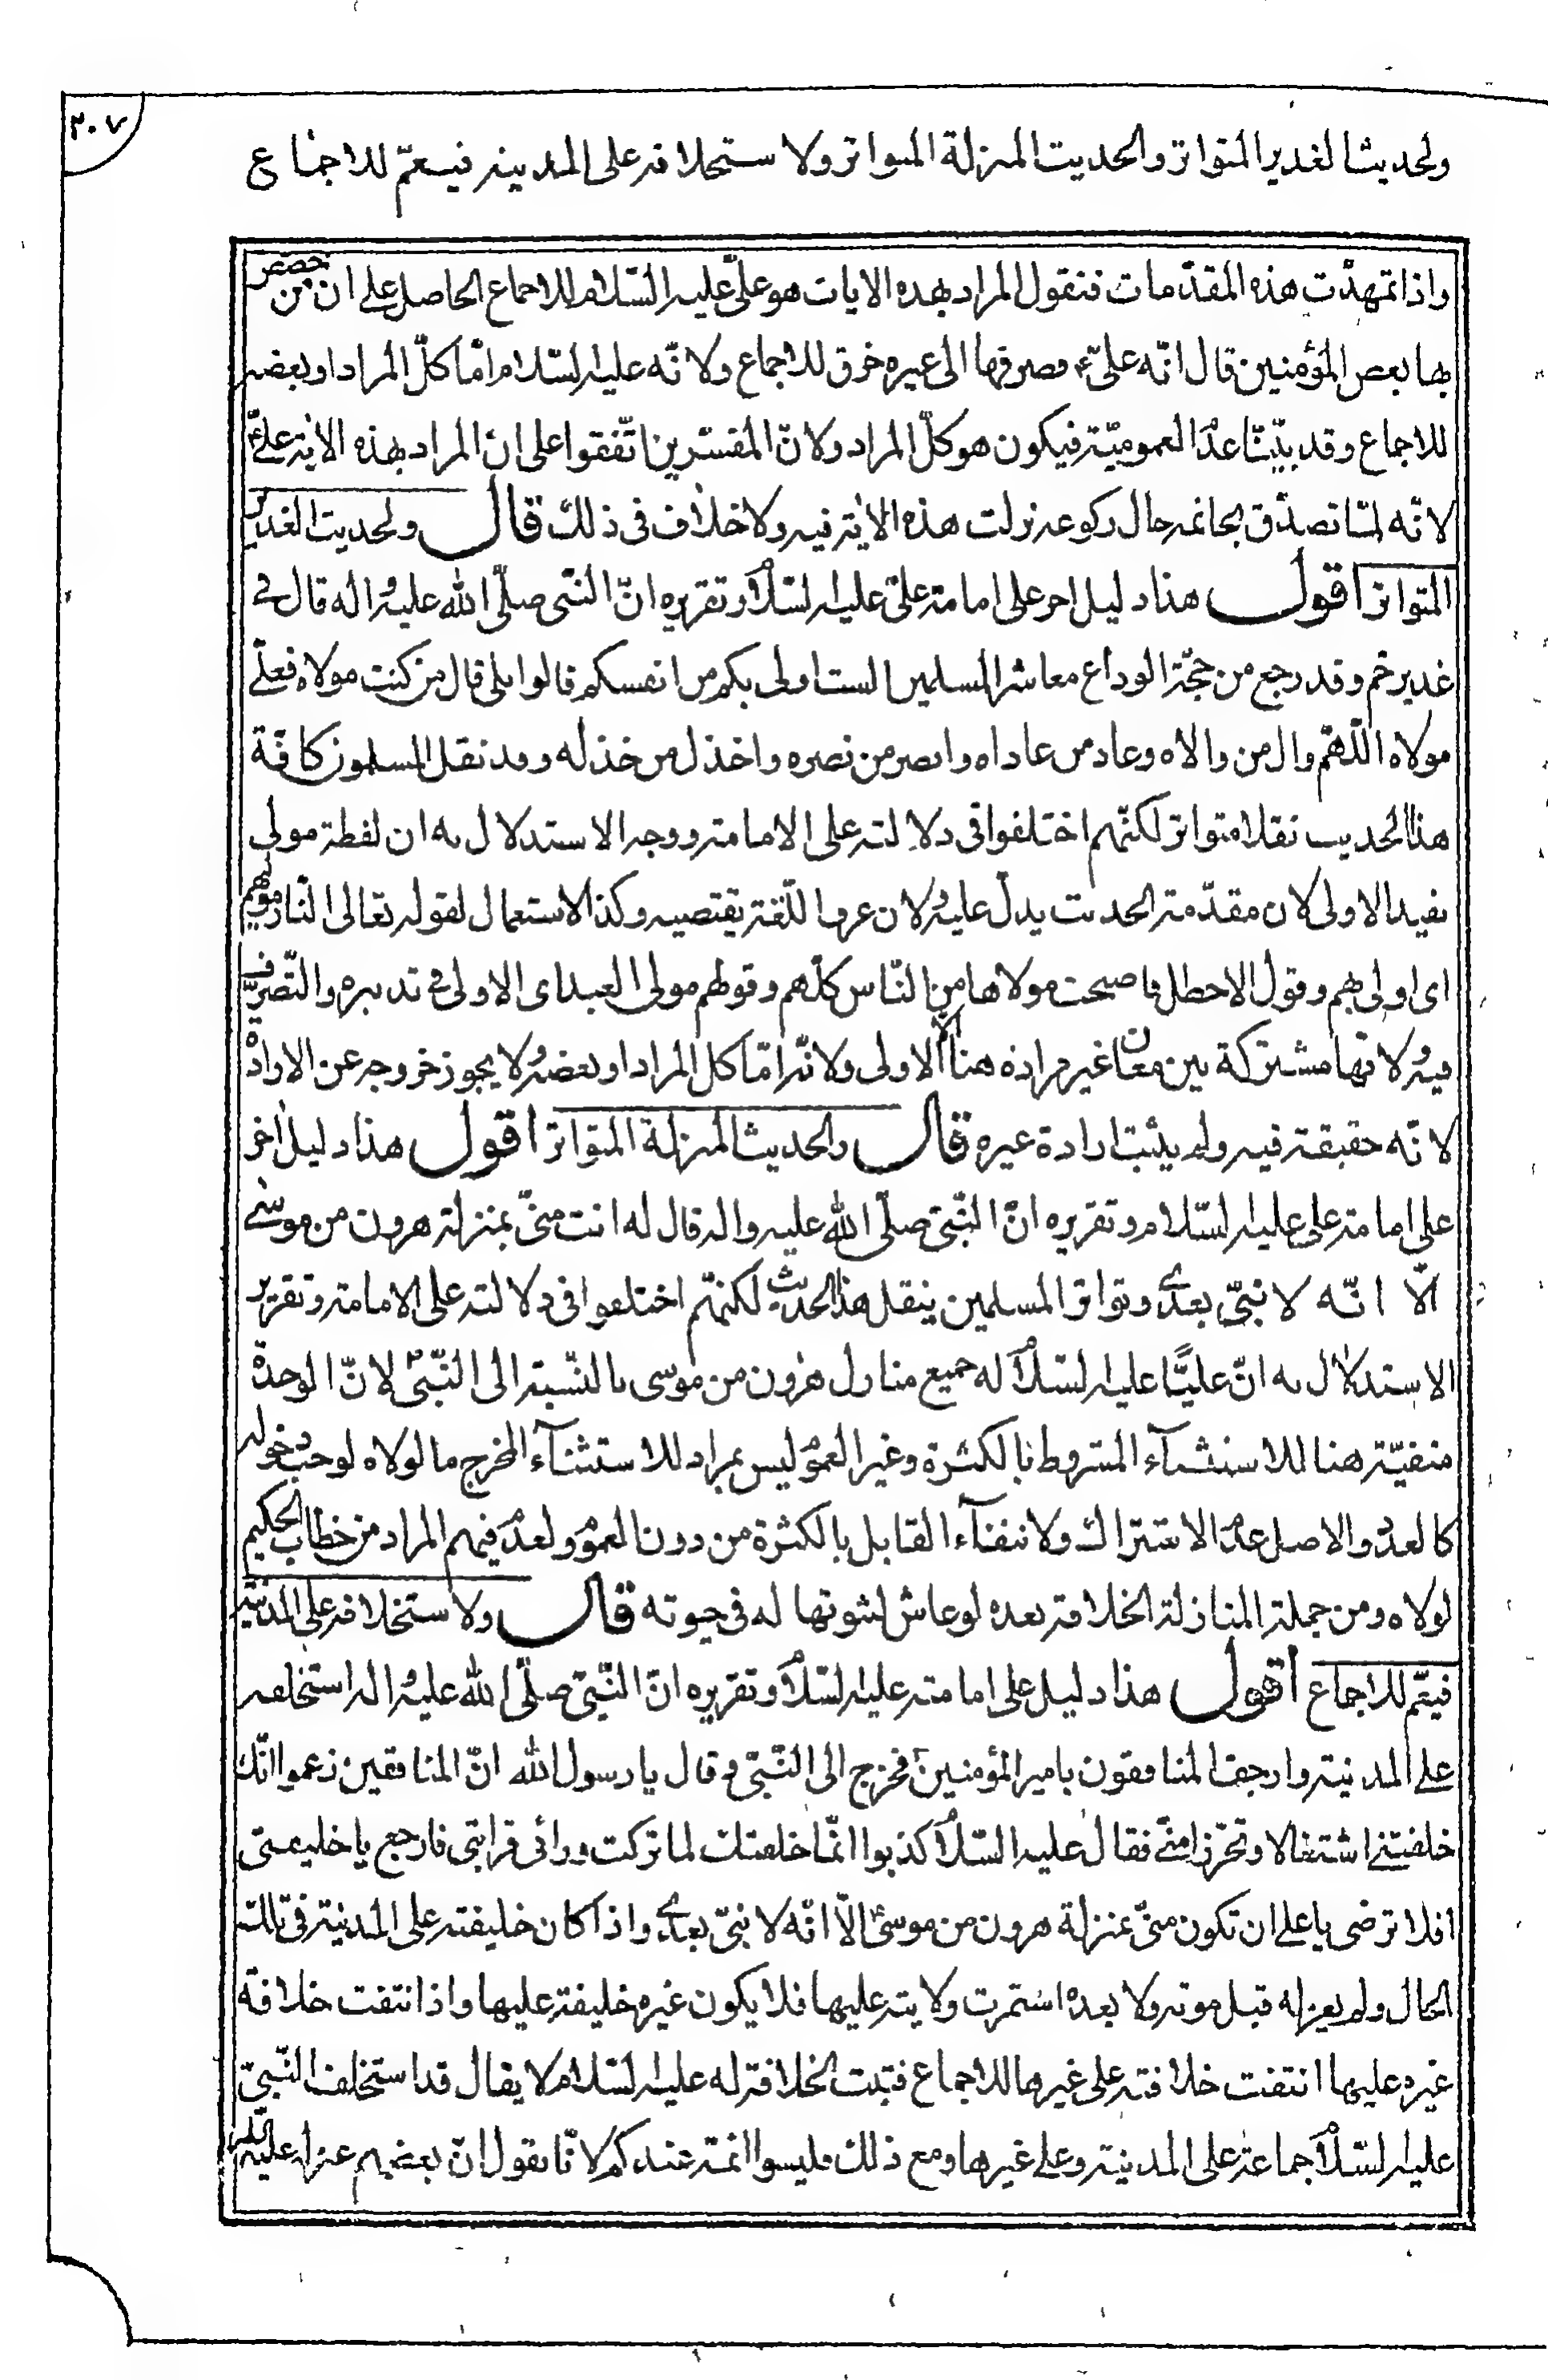 ٢٠٧
ولحديث الغدير المتواتر والحديث المنزلة المتواتر ولاستخلافه على المدينة فيعمّ للاجماع
واذا تمهدّت هذه المقدّمات فنقول المراد بهذه الايات هو علىّ عليه السّلام للاجماع الحاصل على ان من خصص
بها بعض المؤمنين قال انّه علىّ ع وصرفها الى غيره خرق للاجماع ولانّه عليه السّلام امّا كلّ المراد او بعضه
للاجماع وقد بيّنّا عدم العموميّة فيكون هو كلّ المراد ولانّ المفسّرين اتّفقوا على انّ المراد بهذه الاية علىّ ع
لانّه لمّا تصدّق بخاتمه حال ركوعه نزلت هذه الاية فيه ولا خلاف فى ذلك قال ولحديث الغدير
المتواتر اقول هذا دليل اخر على امامة علىّ عليه السّلام وتقريره انّ النّبى صلّى الله عليه واله قال فى
غدير خم وقد رجع من حجّة الوداع معاشر المسلمين الست اولى بكم من انفسكم قالوا بلى قال من كنت مولاه فعلىّ
مولاه اللّهمّ وال من والاه وعاد من عاداه وانصر من نصره واخذل من خذله وقد نقل المسلمون كافّة
هذا الحديث نقلا متواتر لكنّهم اختلفوا فى دلالته على الامامة ووجه الاستدلال به ان لفظة مولى
يفيد الاولى لان مقدّمة الحديث يدلّ عليه ولان عرف اللّغة يقتضيه وكذا الاستعمال لقوله تعالى النّار مولهم
اى اولى بهم وقول الاخطل فاصبحت مولاها من النّاس كلّهم وقولهم مولى العبد اى الاولى فى تدبيره والتّصرّف
فيه ولانّها مشتركة بين معان غير مرادة هنا الا الاولى ولانّه امّا كل المراد او بعضه ولا يجوز خروجه عن الارادة
لانّه حقيقة فيه ولم يثبت ارادة غيره قال والحديث المنزلة المتواتر اقول هذا دليل اخر
على امامة على عليه السّلام وتقريره انّ النّبىّ صلّى الله عليه واله قال له انت منّى بمنزلة هرون من موسى
الّا انّه لا نبىّ بعدى وتواتر المسلمين ينقل هذا الحديث لكنّهم اختلفوا فى دلالته على الامامة وتقرير
الاستدلال به انّ عليّا عليه السّلام له جميع منازل هرون من موسى بالنّسبة الى النّبىّ ص لانّ الوحدة
منفيّة هنا للاستثناء المشروط بالكثرة وغير العموم ليس بمراد للاستثناء المخرج ما لولاه لوجب دخوله
كالعدد والاصل عدم الاشتراك ولانتفاء القابل بالكثرة من دون العموم ولعدم فهم المراد من خطاب الحكيم
لولاه ومن جملة المنازلة الخلافة بعده لو عاش لثبوتها له فى حيوته قال ولاستخلافه على المدينة
فيعمّ للاجماع اقول هذا دليل على امامته عليه السّلام وتقريره انّ النّبىّ صلّى الله عليه واله استخلفه
على المدينة وارجف المنافقون بامير المؤمنين فخرج الى النّبىّ ص وقال يا رسول الله انّ المنافقين زعموا انّك
خلفتنى اشتغالا وتحرّزا منّى فقال عليه السّلام كذبوا انّما خلفتك لما تركت ورائى فرابتى فارجع يا خليفتى
افلا ترضى يا على ان تكون منّى بمنزلة هرون من موسى الّا انّه لا نبىّ بعدى واذا كان خليفته على المدينة فى تلك
الحال ولم يعزله قبل موته ولا بعده استمرت ولايته عليها فلا يكون غيره خليفة عليها واذا انتفت خلافة
غيره عليها انتفت خلافته على غيرها للاجماع فثبت الخلافة له عليه السّلام لا يقال قد استخلف النّبىّ
عليه السّلام جماعة على المدينة وعلى غيرها ومع ذلك فليسوا ائمّة عندكم لانّا نقول انّ بعضهم عزله عليه السّلام